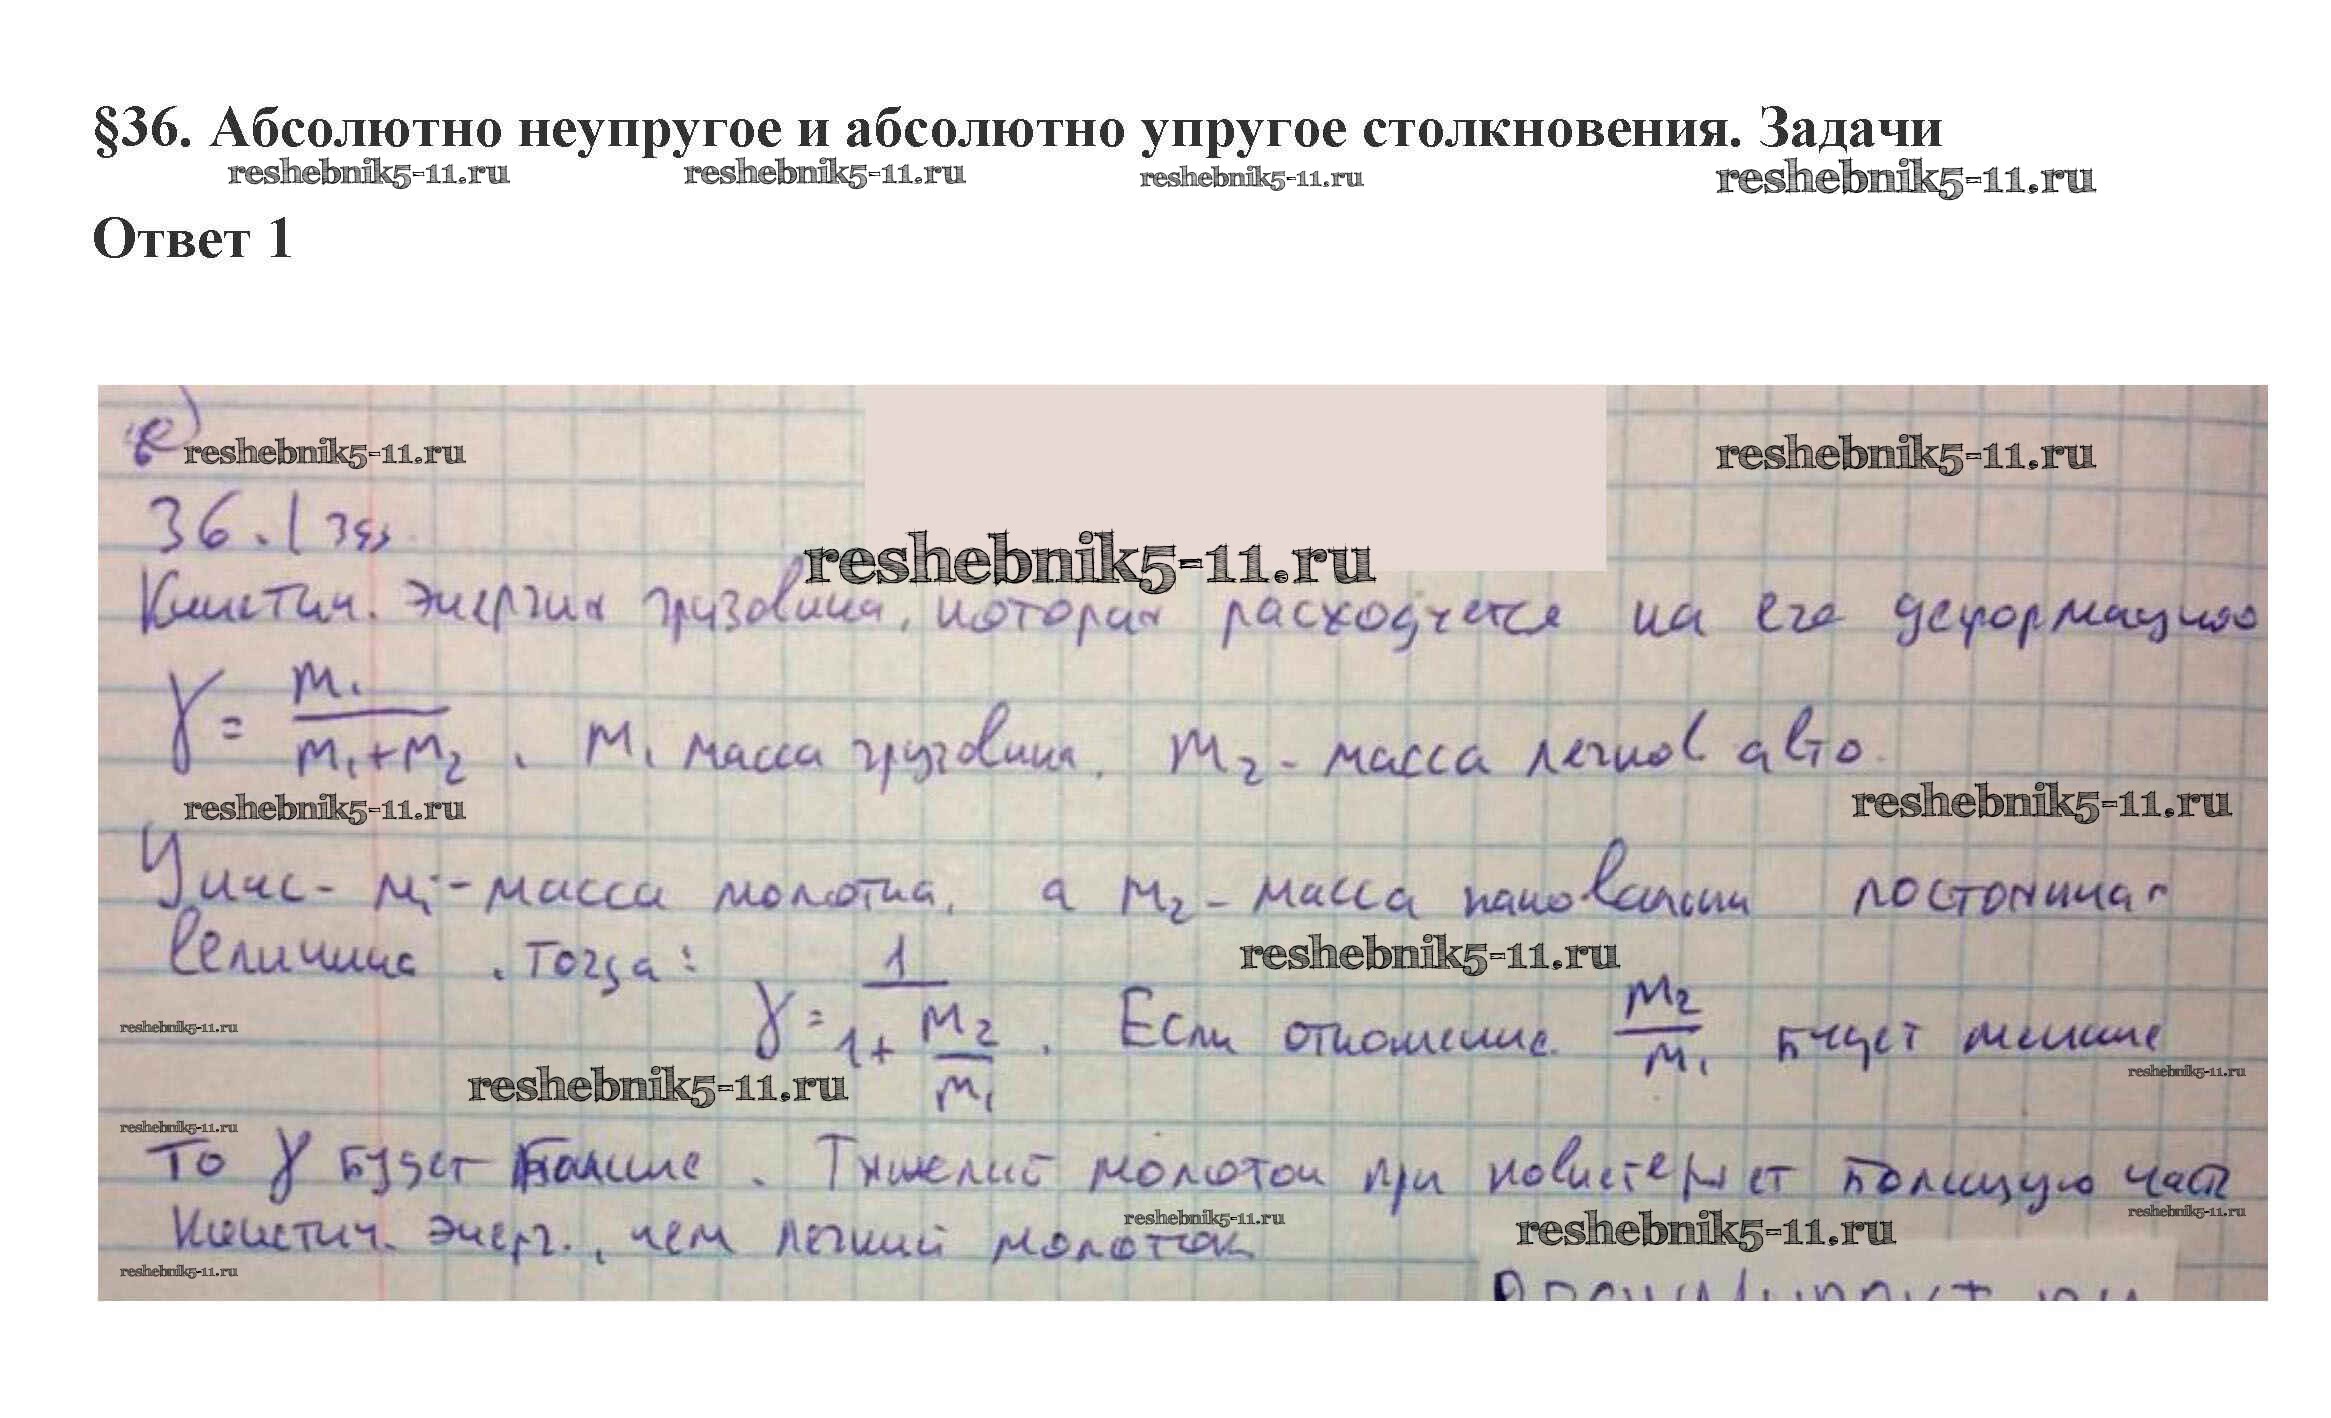 §36. Абсолютно неупругое и абсолютно упругое столкновения. Задачи
reshebnik5-11.ru reshebnik5-11.ru reshebnik5-11.ru reshebnik5-11.ru
Ответ 1
reshebnik5-11.ru reshebnik5-11.ru
36.1
reshebnik5-11.ru
Кинетич. энергия грузовика, которая расходуется на его деформацию
γ = m₁/(m₁+m₂), m₁ масса грузовика, m₂ - масса легков авто.
reshebnik5-11.ru reshebnik5-11.ru
У нас - m₁ - масса молотка, а m₂ - масса наковальни постоянная
величина. Тогда:
reshebnik5-11.ru
γ = 1/(1+m₂/m₁). Если отношение m₂/m₁ будет меньше
reshebnik5-11.ru
reshebnik5-11.ru reshebnik5-11.ru
reshebnik5-11.ru
То γ будет больше. Тяжелый молоток при потеряет большую часть
reshebnik5-11.ru reshebnik5-11.ru reshebnik5-11.ru
Кинетич. энерг., чем легкий молоток
reshebnik5-11.ru